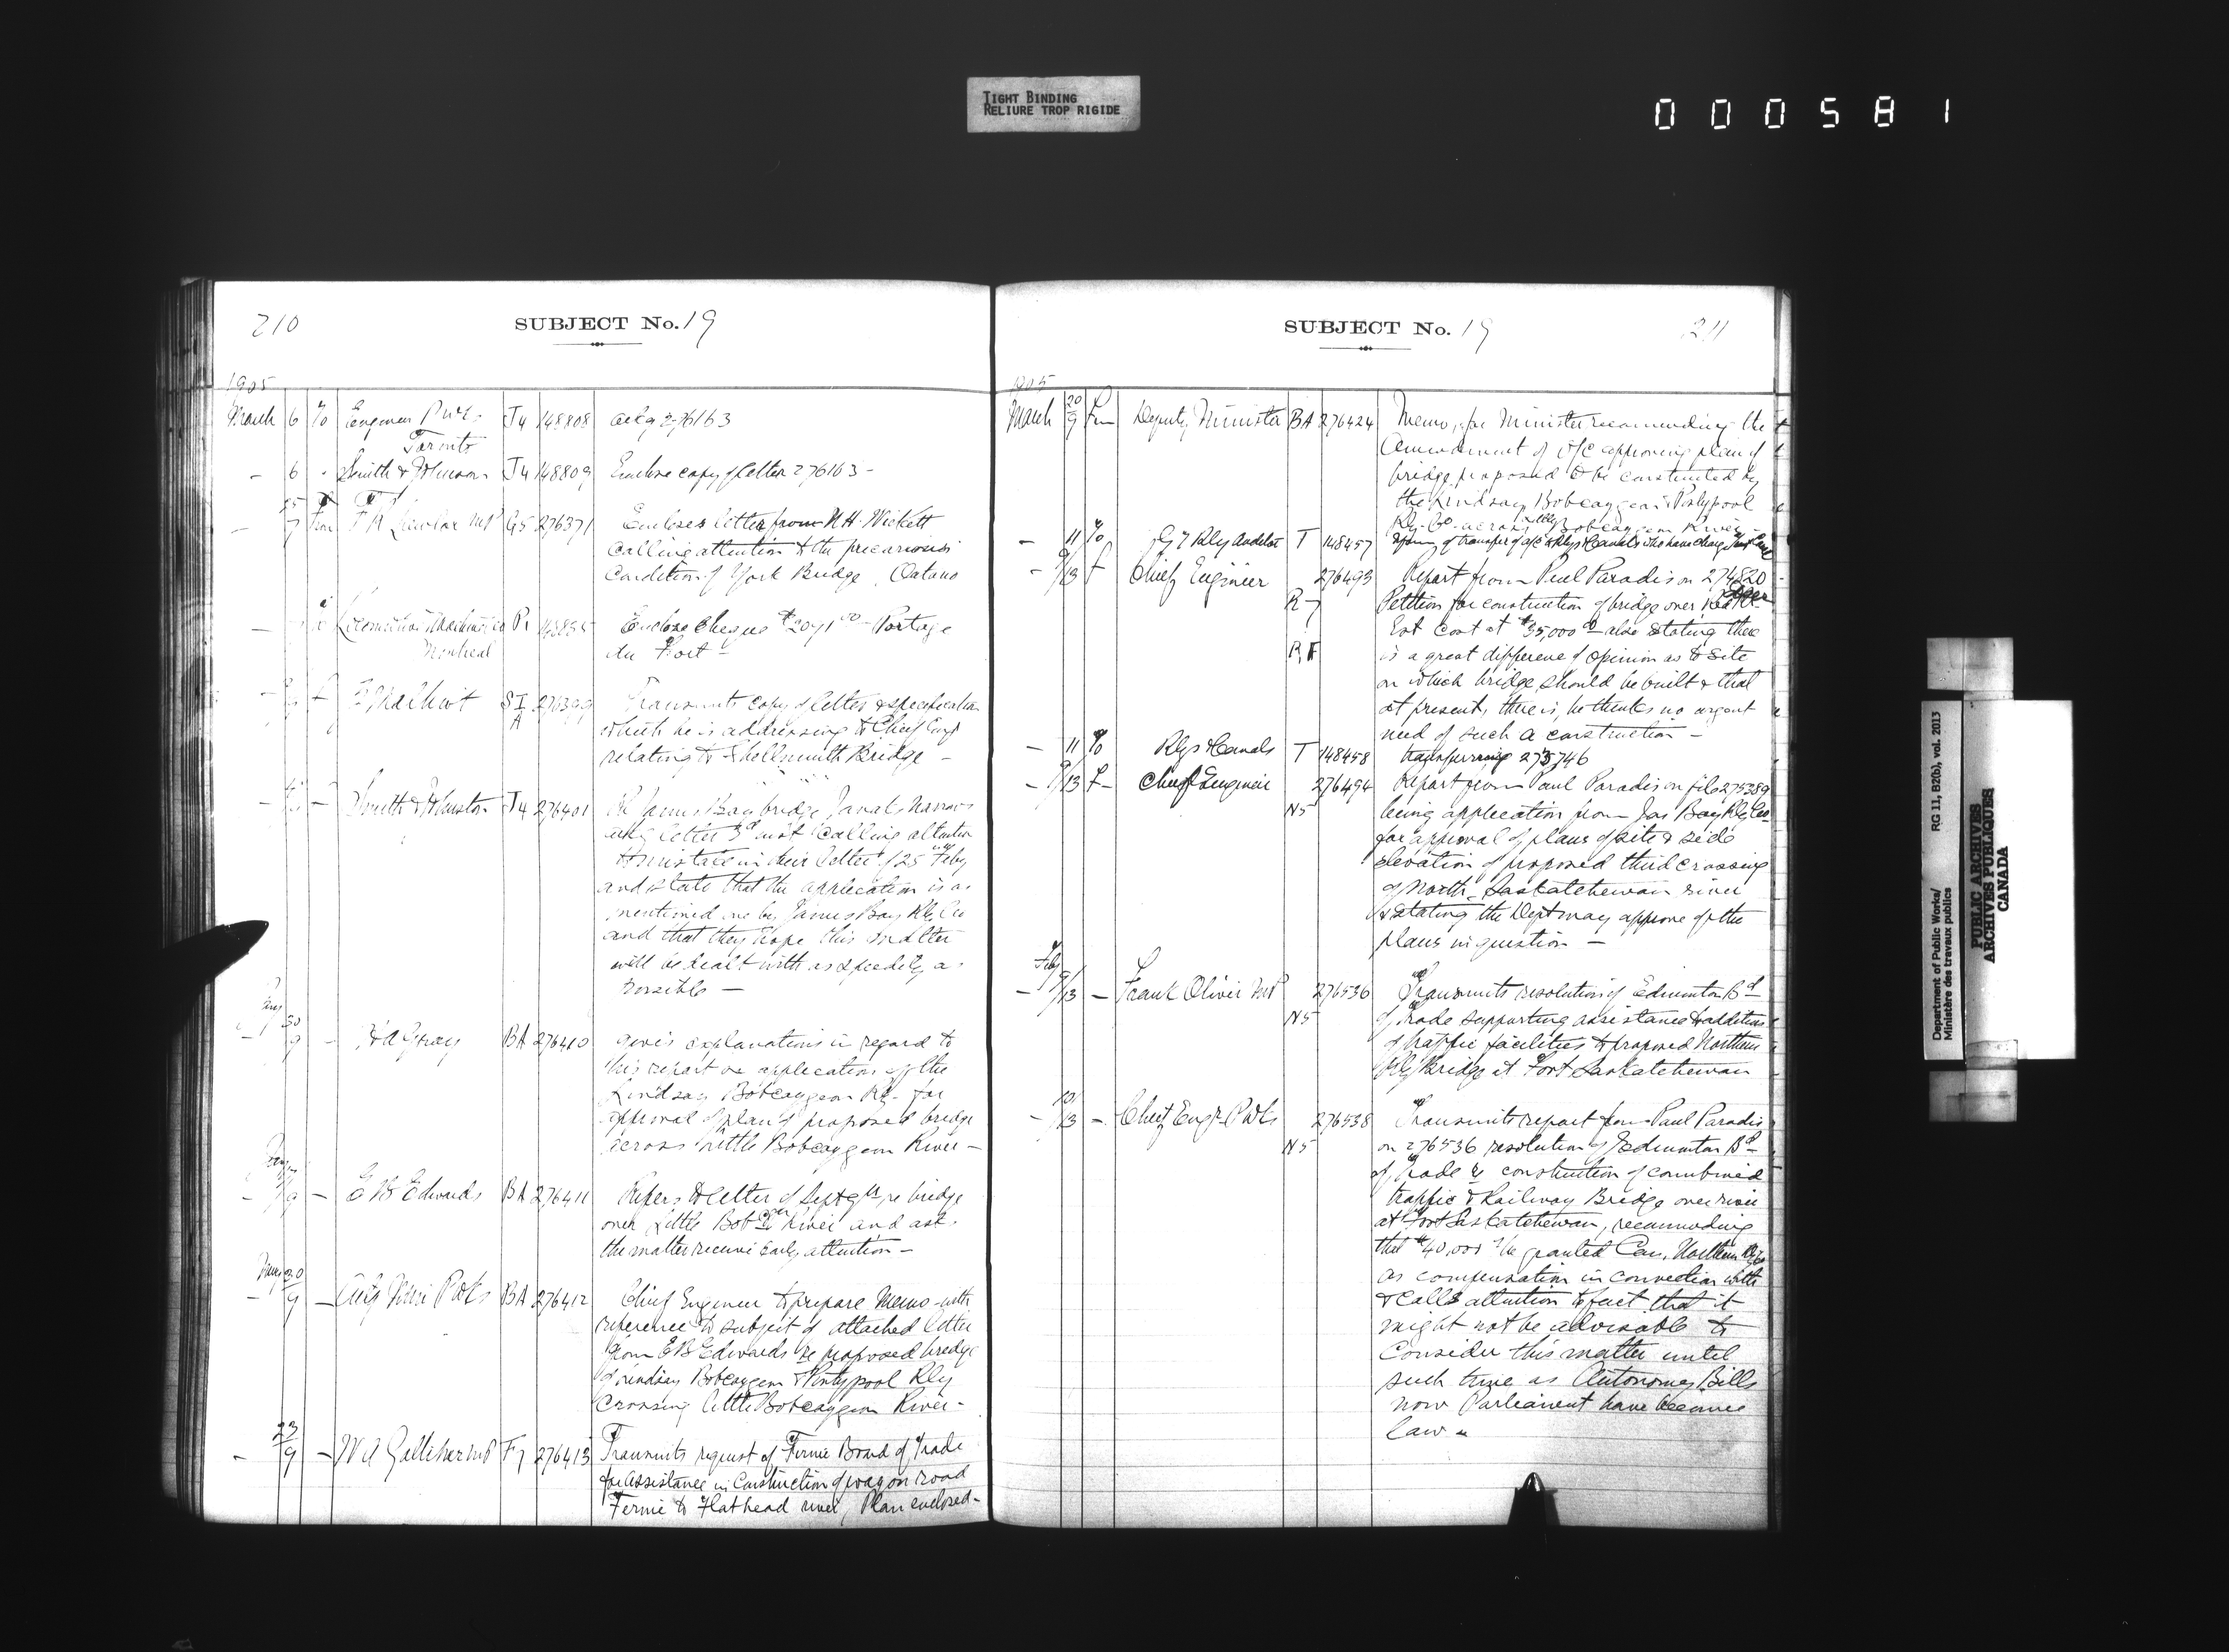 TIGHT BINDING
RELIURE TROP RIGIDE
000581
210
SUBJECT No. 19
1905
March 6 To Engineer P. Wks. J4 148808 ackg 276163
Toronto
— 6 " Smith & Johnson J4 148809 Enclose copy of letter 276163 —
— 7 Fm MP G5 276371 Encloses letter from N.H. Wickett
Calling attention to the precarious
Condition of York Bridge, Ontario
P1 Enclose cheque $2071.00 — Portage
Montreal du Fort —
SI 276399 Transmits copy of letter & specification
A which he is addressing to Chief Engr
relating to Shellmouth Bridge —
— Smith & Johnston J4 276401 Re James Bay bridge, Narrows
ackg letter 3d inst Calling attention
in their letter of 25 Feby
and state that the application is as
mentioned one by James Bay Rly Co
and that they hope this matter
will be dealt with as speedily as
possible —
30
9 — H A Gray BA 276410 gives explanations in regard to
his report re application of the
Lindsay Bobcaygeon Rly. for
approval of plan of proposed bridge
across Little Bobcaygeon River —
— 9 — E B Edwards BA 276411 Refers to letter of Sept 9th, re bridge
over Little River and ask
the matter receive early attention —
20
— 9 — Actg Mini P Wks BA 276412 Chief Engineer to prepare Memo with
reference to subject of attached letter
from E B Edwards re proposed bridge
of Lindsay Bobcaygeon & Pontypool Rly
Crossing little Bobcaygeon River —
23
— 9 — W A Galliher MP F7 276413 Transmits request of Fernie Board of Trade
for Assistance in Construction of wagon road
Fernie to Flathead river, Plan enclosed —
SUBJECT No. 19
211
1905
March 20/9 Fm Deputy Minister BA 276424 Memo, for Minister recommending the
Amendment of O/C approving plan of
bridge proposed to be constructed by
the Lindsay Bobcaygeon & Pontypool
Rly Co. across little Bobcaygeon River —
— 11 To G T Rly Auditor T 148457 of transfer of a/c to Rlys & Canals who have charge
— 9/13 f Chief Engineer 276493 Report from Paul Paradis on 274820
R 7 Petition for construction of bridge over Red Deer
Est Cost at $35,000.00 also stating there
R F is a great difference of opinion as to site
on which bridge should be built & that
at present, there is, he thinks no urgent
need of such a construction —
— 11 To Rlys & Canals T 148458 transferring 275746
— 9/13 f — Chief Engineer 276494 Report from Paul Paradis on file 275389
N5 being application from Jas Bay Rly Co
for approval of plans of site & side
elevation of proposed third crossing
of North Saskatchewan river
& stating the Dept may approve of the
plans in question —
Feby
— 9/13 — Frank Oliver MP 276536 Transmits resolution of Edmonton Bd
N5 of Trade supporting assistance to addition
of traffic facilities to proposed Northern
Rly Bridge at Fort Saskatchewan
— 10/13 — Chief Engr P Wks 276538 Transmits report from Paul Paradis
N5 on 276536 resolution of Edmonton Bd
of Trade re construction of combined
traffic & Railway Bridge over river
at Fort Saskatchewan, recommending
that $40,000 be granted Can. Northern Rly Co
as compensation in connection with
& Calls attention to fact that it
might not be advisable to
Consider this matter until
such time as Autonomy Bills
now Parliament have become
law —
Department of Public Works/
Ministère des travaux publics
RG 11, B2(b), vol. 2013
PUBLIC ARCHIVES
ARCHIVES PUBLIQUES
CANADA